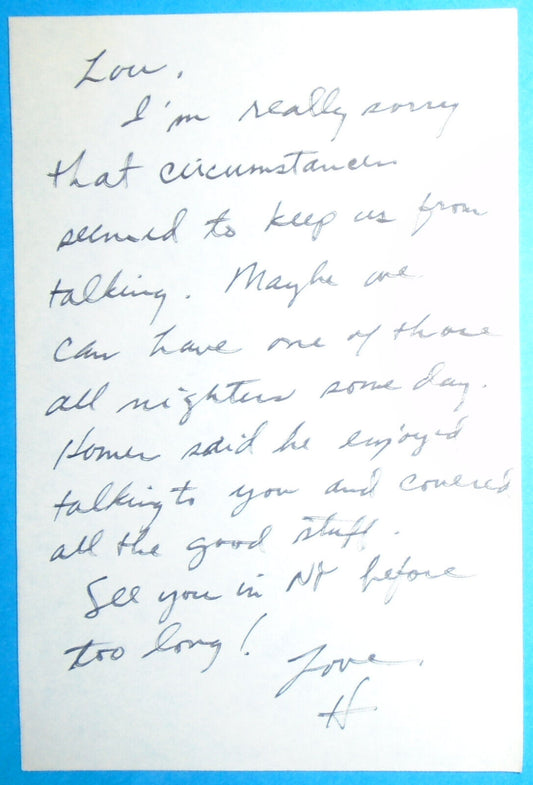 Lou,
I'm really sorry
that circumstances
seemed to keep us from
talking. Maybe we
can have one of those
all nighters some day.
Homer said he enjoyed
talking to you and covered
all the good stuff.
See you in NY before
too long!
Love,
H